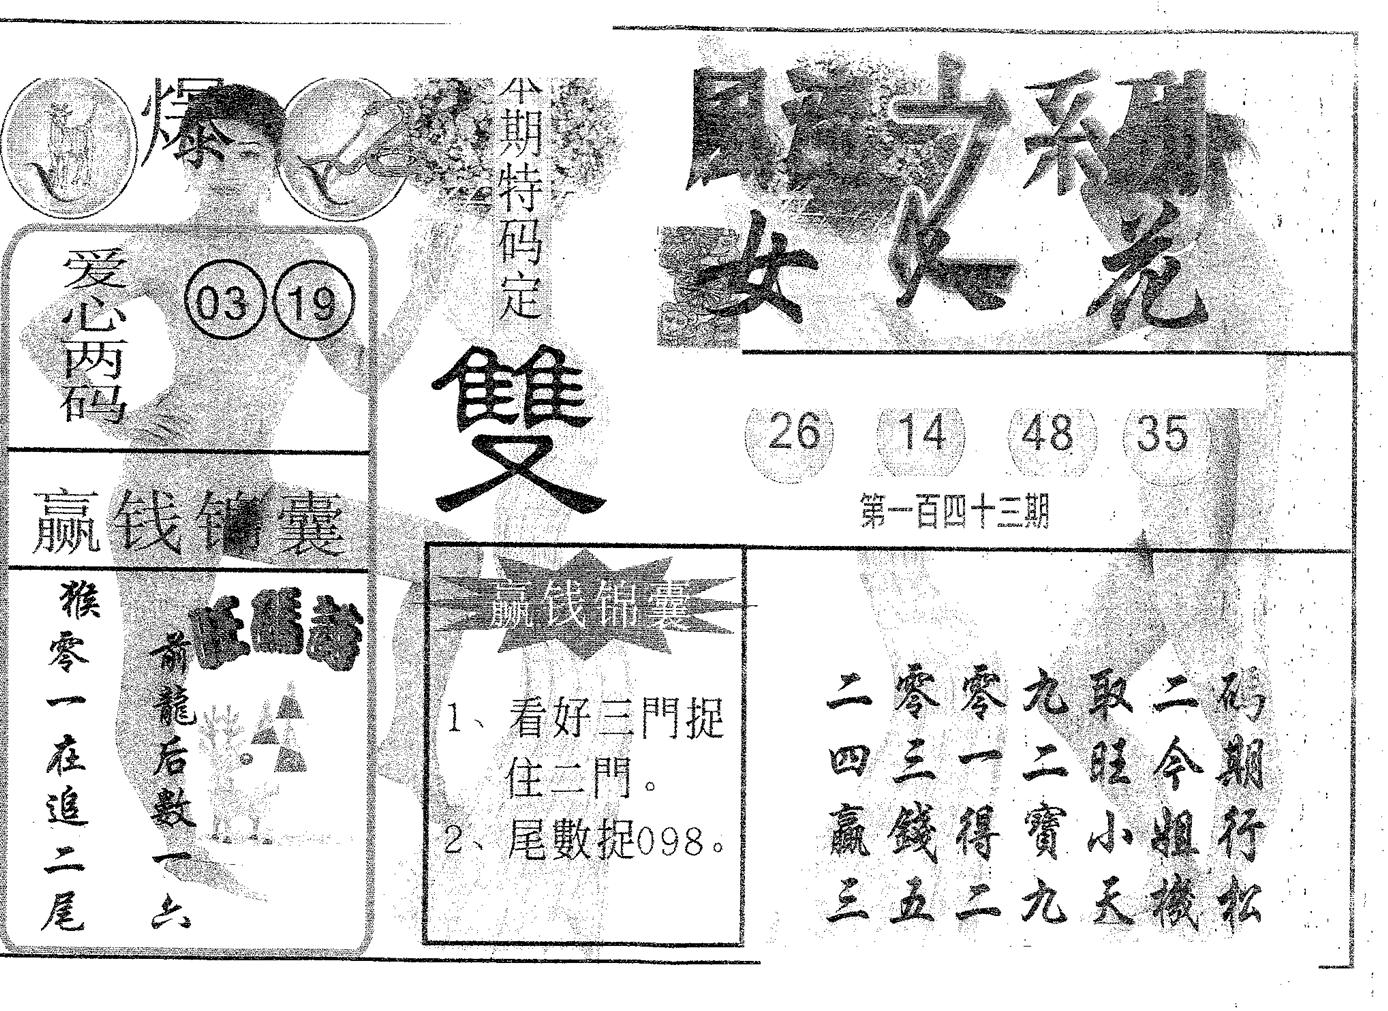 爆
本期特码定
雙
爱心两码
03 19
赢钱锦囊
猴零一在追二尾
前龍后數一六
旺碼詩
赢钱锦囊
1、看好三門捉
住二門。
2、尾數捉098。
系列
女人花
26 14 48 35
第一百四十三期
码期行松
二今姐機
取旺小天
九二寶九
零一得二
零三錢五
二四贏三